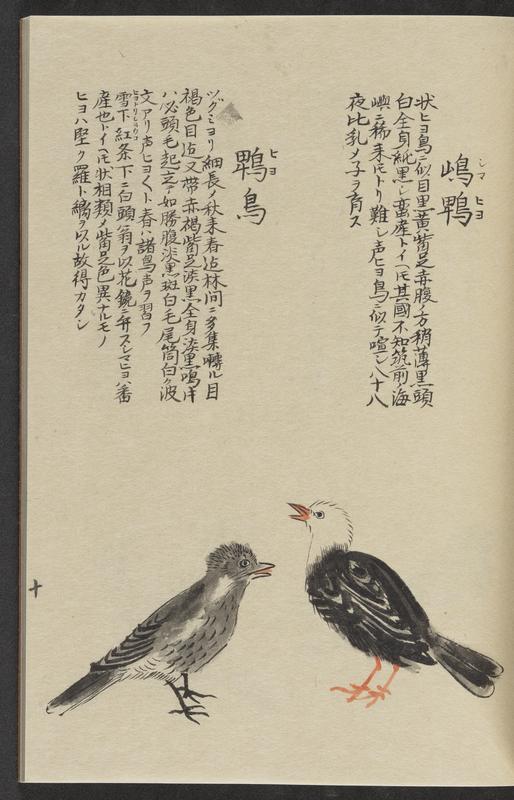 嶋鵯
シマ ヒヨ
状ヒヨ鳥ニ似目黒黄觜足赤腹ノ方稍薄黒頭
白全身純黒シ蛮産トイヘ𪜈其國不知筑前ノ海
嶼ニ稀来𪜈トリ難シ声ヒヨ鳥ニ似テ喧シ八十八
夜比乳メ子ヲ育ス
鵯鳥
ヒヨ
ツグミヨリ細長ノ秋来春迠林間ニ多集囀ル目
褐色目辺又帯赤褐觜足淡黒全身淡黒鳴時
ハ必頭毛起立 如勝腹淡黒斑白毛尾筒白ク波
文アリ声ヒヨく ト春ハ諸鳥声ヲ習フ
雪下紅条下ニ白頭翁ヲ以花鏡ニ弁スシマヒヨハ番
産也トイヘ𪜈状相類ノ觜足色異ナルモノ
ヒヨハ堅ク羅ト縭ヲ以ル故得カタシ
十